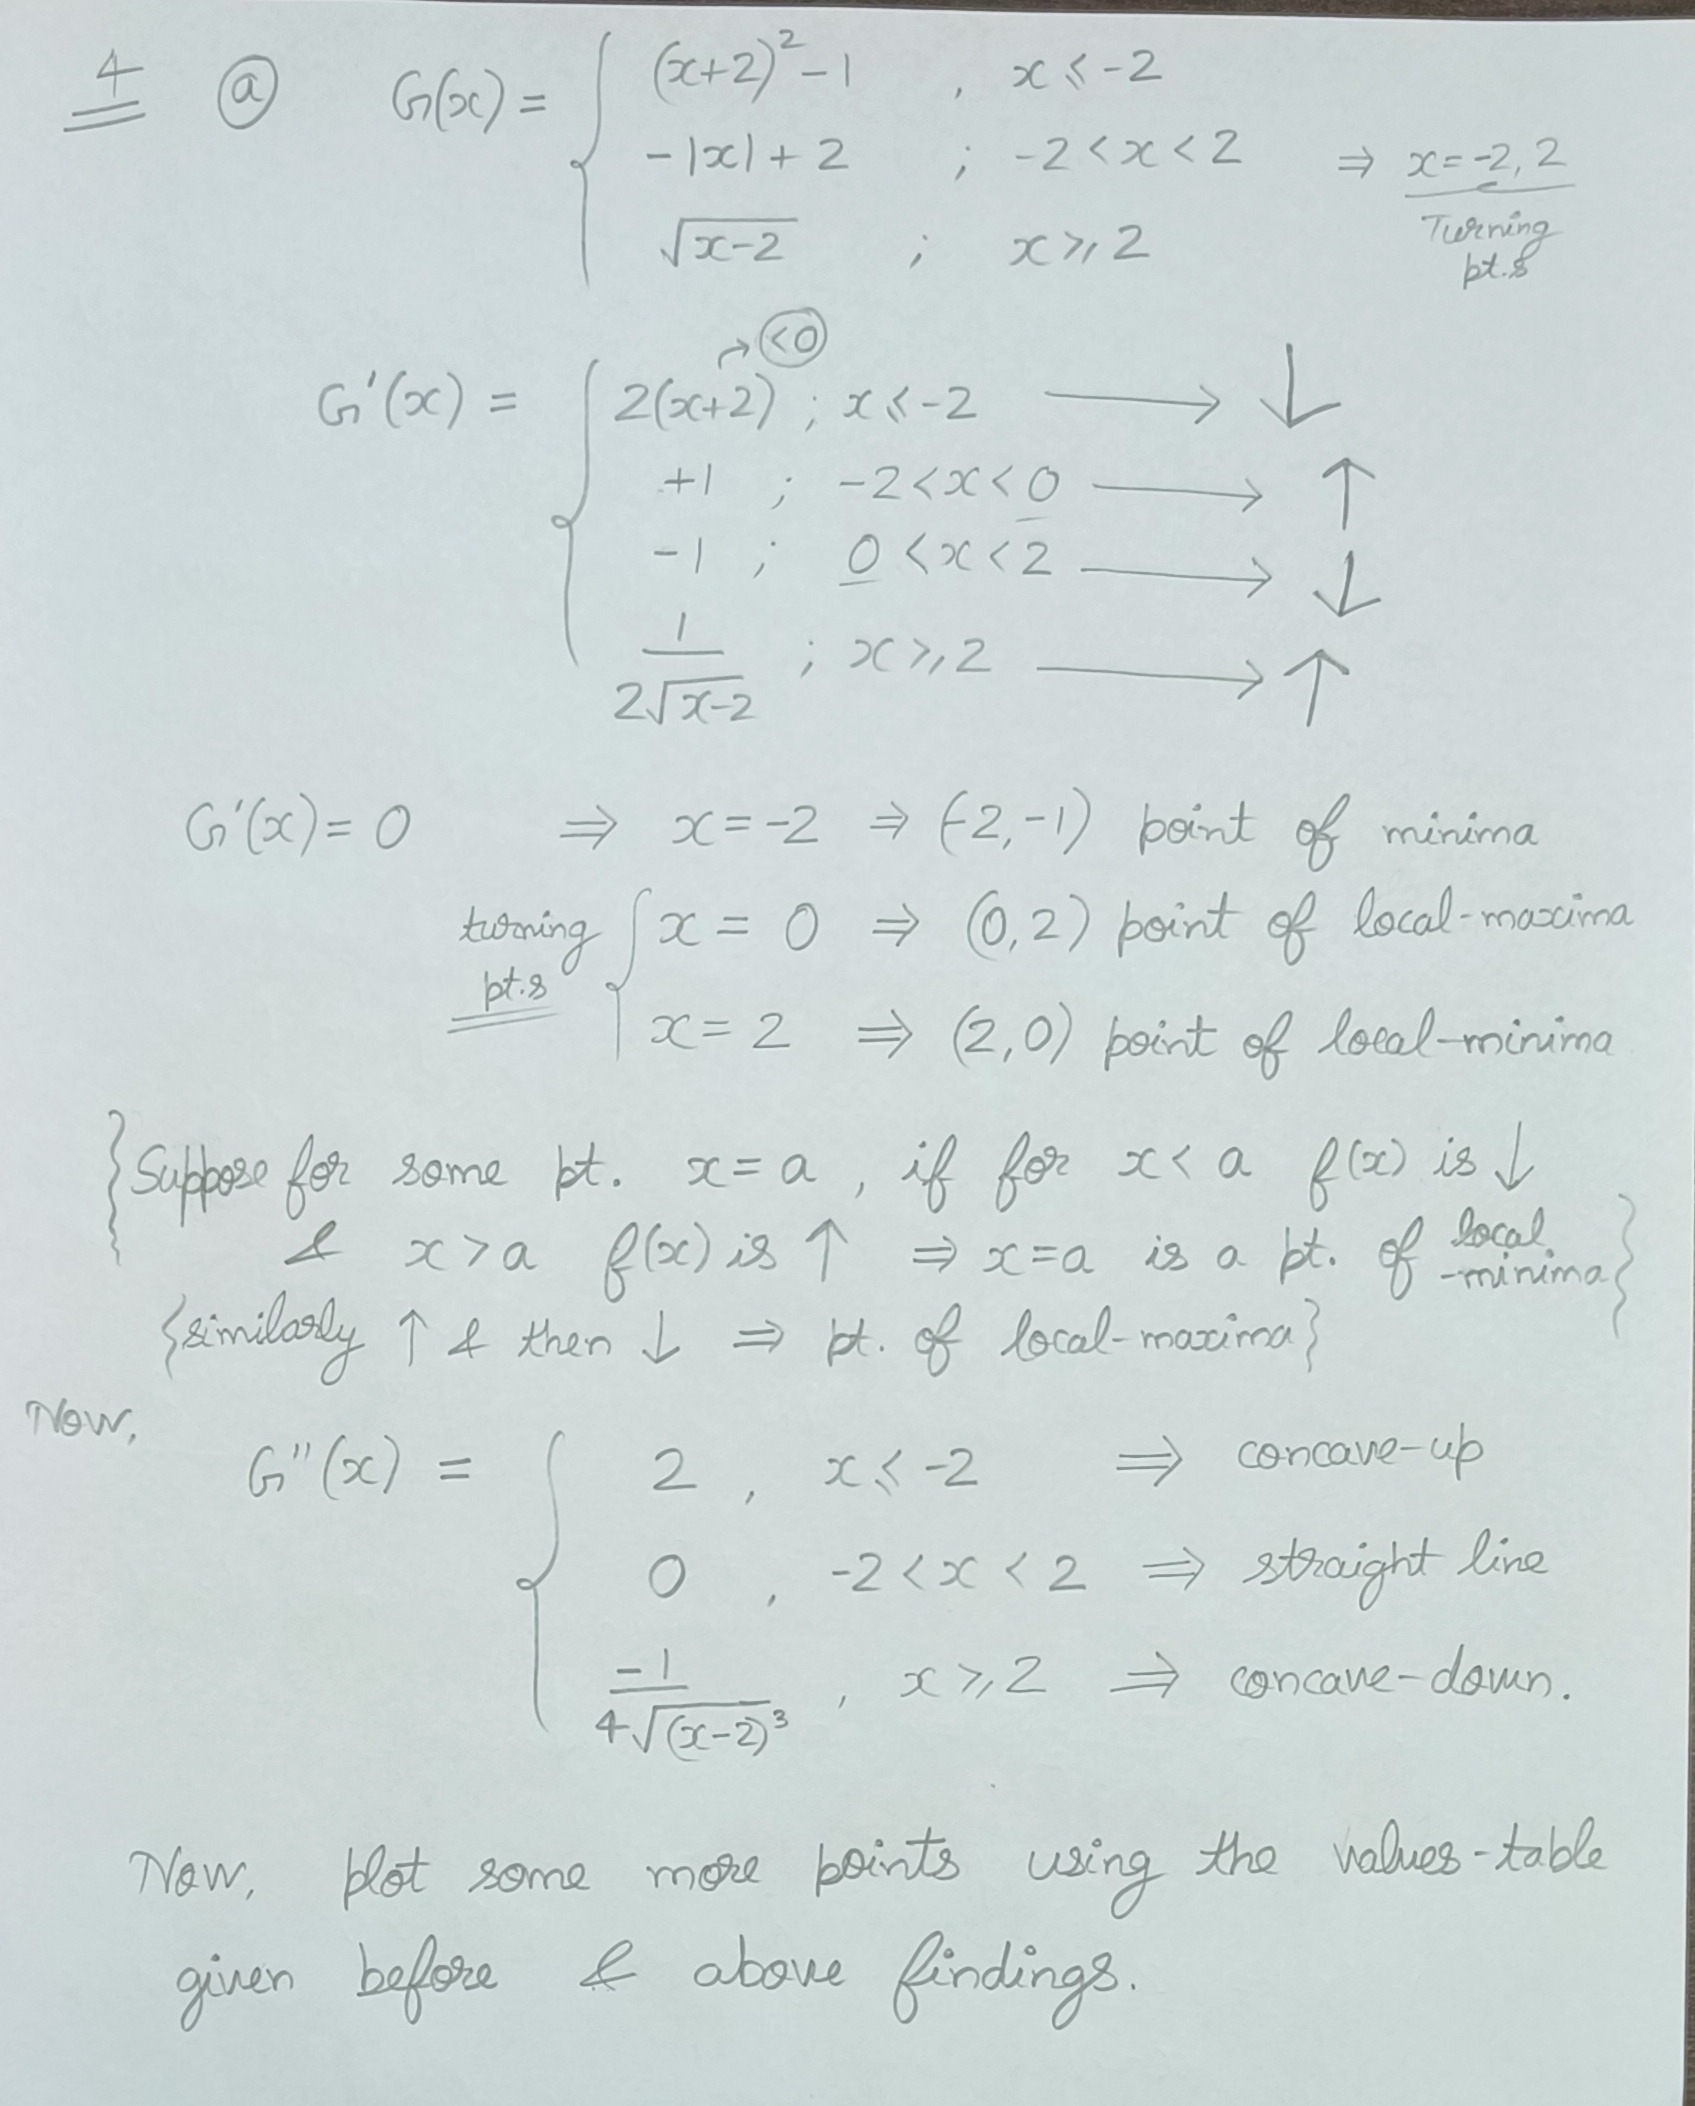 4 (a) G(x) = { (x+2)² - 1 , x ⩽ -2
-|x| + 2 ; -2 < x < 2 ⇒ x = -2, 2
√(x-2) ; x ⩾ 2 Turning
pt.s
→ (<0)
G'(x) = { 2(x+2) ; x ⩽ -2 ⟶ ↓
+1 ; -2 < x < 0 ⟶ ↑
-1 ; 0 < x < 2 ⟶ ↓
1/(2√(x-2)) ; x ⩾ 2 ⟶ ↑
G'(x) = 0 ⇒ x = -2 ⇒ (-2, -1) point of minima
turning { x = 0 ⇒ (0, 2) point of local-maxima
pt.s
x = 2 ⇒ (2, 0) point of local-minima
{Suppose for some pt. x = a , if for x < a f(x) is ↓
& x > a f(x) is ↑ ⇒ x = a is a pt. of local
-minima}
{similarly ↑ & then ↓ ⇒ pt. of local-maxima}
Now,
G''(x) = { 2 , x ⩽ -2 ⇒ concave-up
0 , -2 < x < 2 ⇒ straight line
-1/(4√(x-2)³) , x ⩾ 2 ⇒ concave-down.
Now, plot some more points using the values-table
given before & above findings.